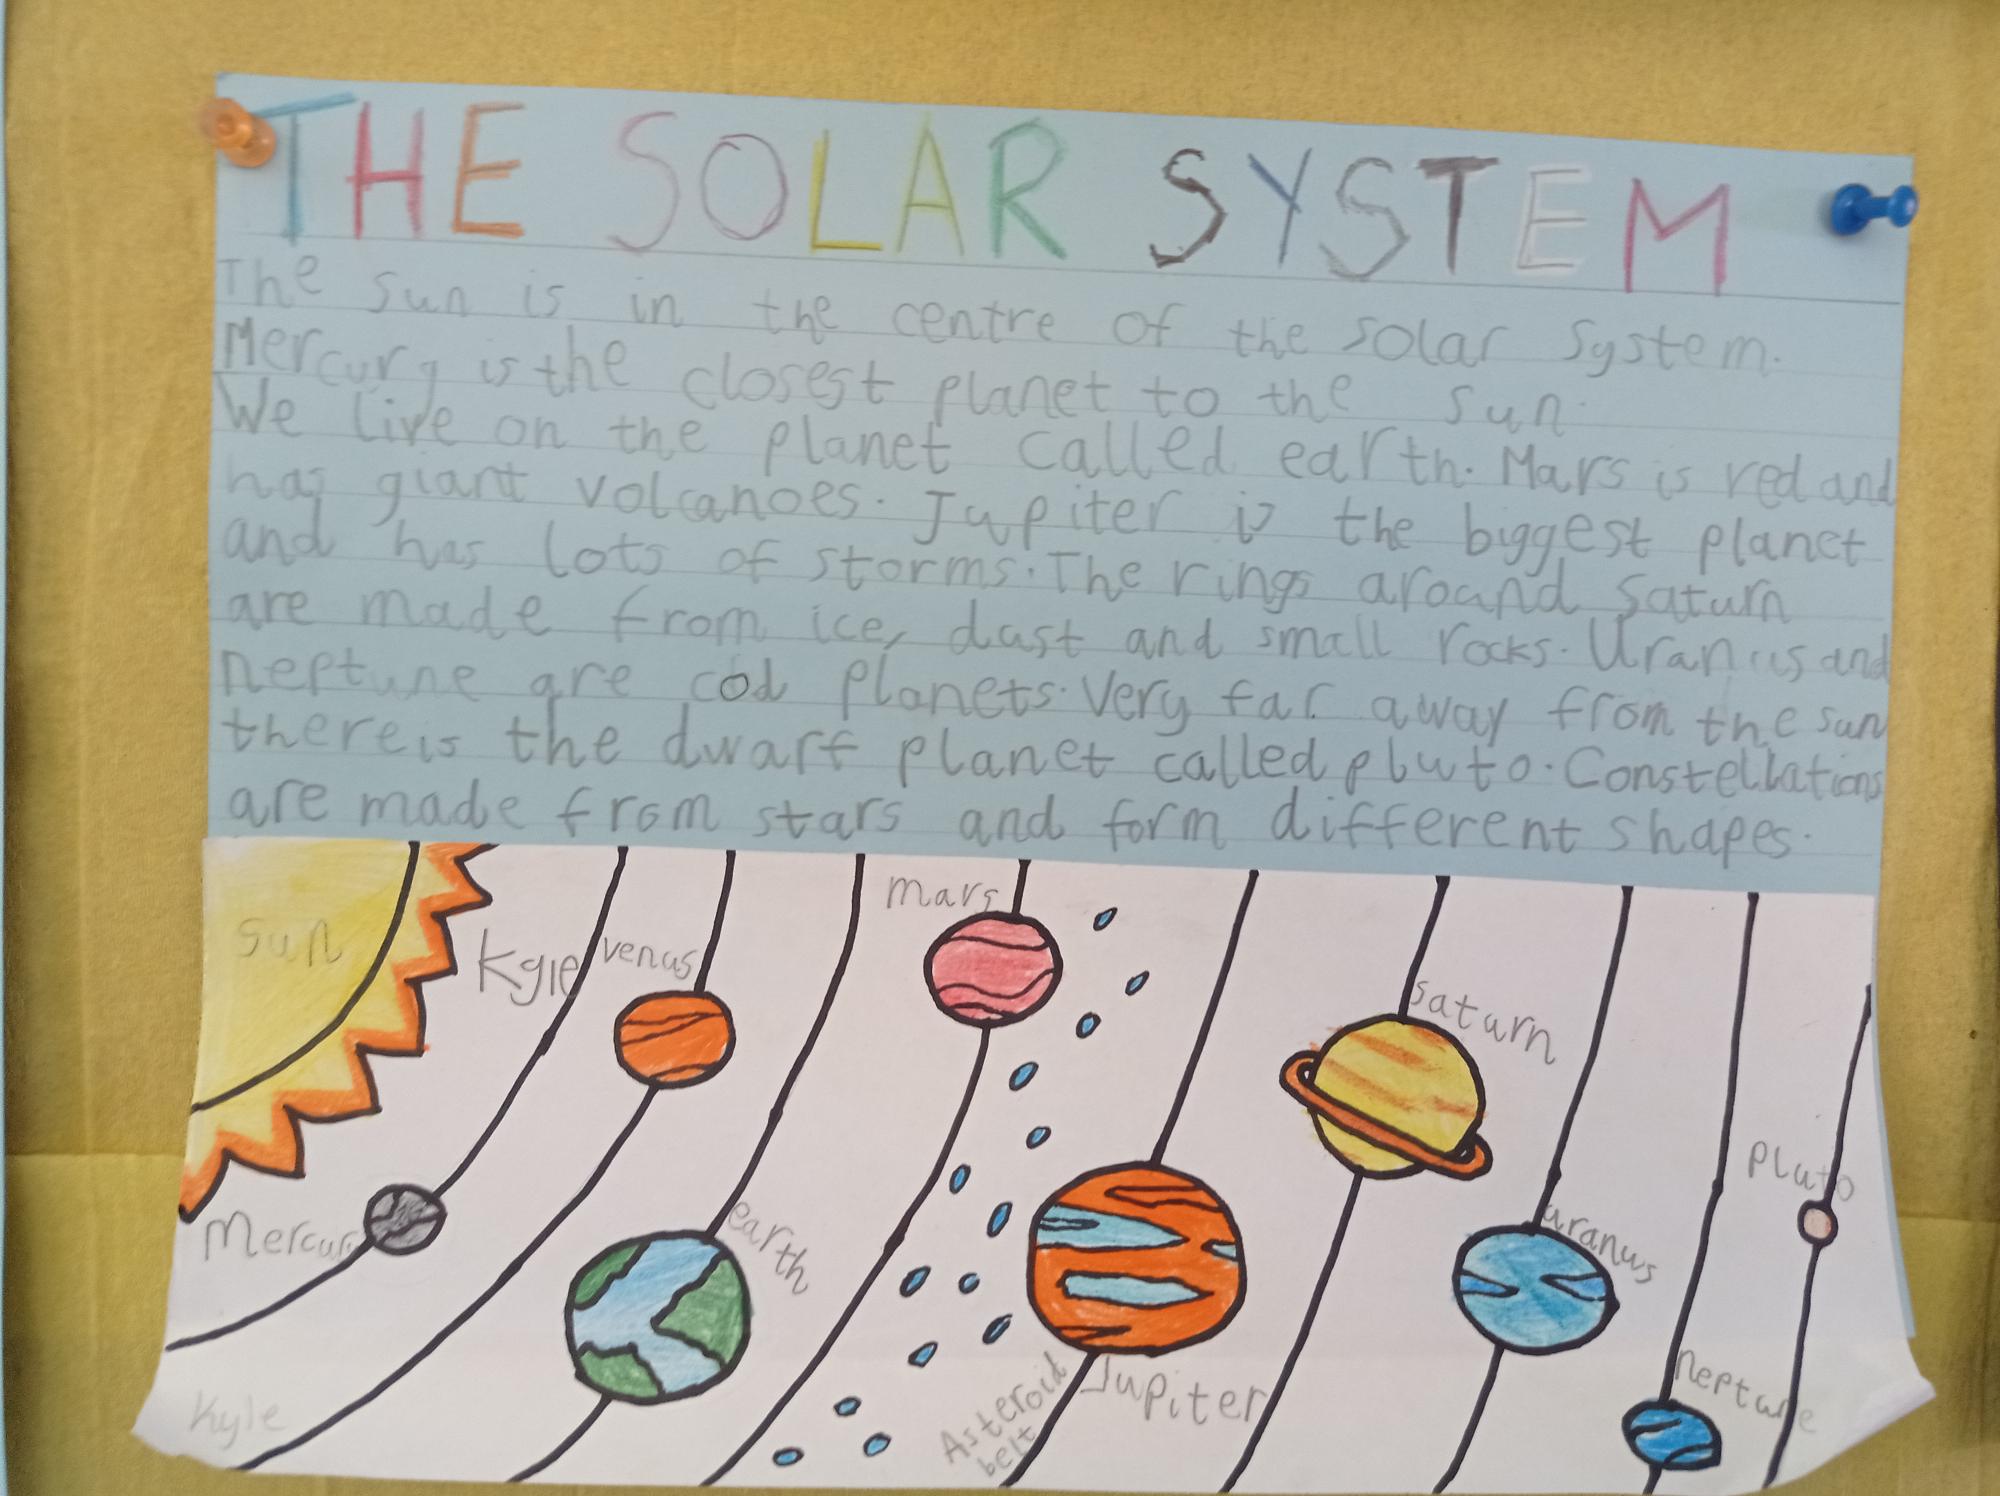 THE SOLAR SYSTEM
The sun is in the centre of the solar system.
Mercury is the closest planet to the sun.
We live on the planet called earth. Mars is red and
has giant volcanoes. Jupiter is the biggest planet
and has lots of storms. The rings around saturn
are made from ice, dust and small rocks. Uranus and
neptune are cod planets. Very far away from the sun
there is the dwarf planet called pluto. Constellations
are made from stars and form different shapes.
mars
sun
Kyle
venus
saturn
pluto
Mercury
earth
uranus
neptune
Asteroid
belt
Jupiter
Kyle